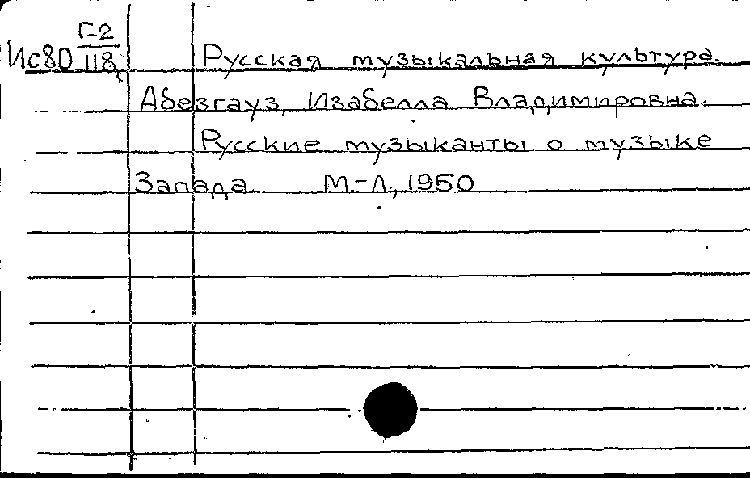 Г-2
Ис80 118 Русская музыкальная культура.
Абезгауз, Изабелла Владимировна.
Русские музыканты о музыке
Запада М.-Л., 1950